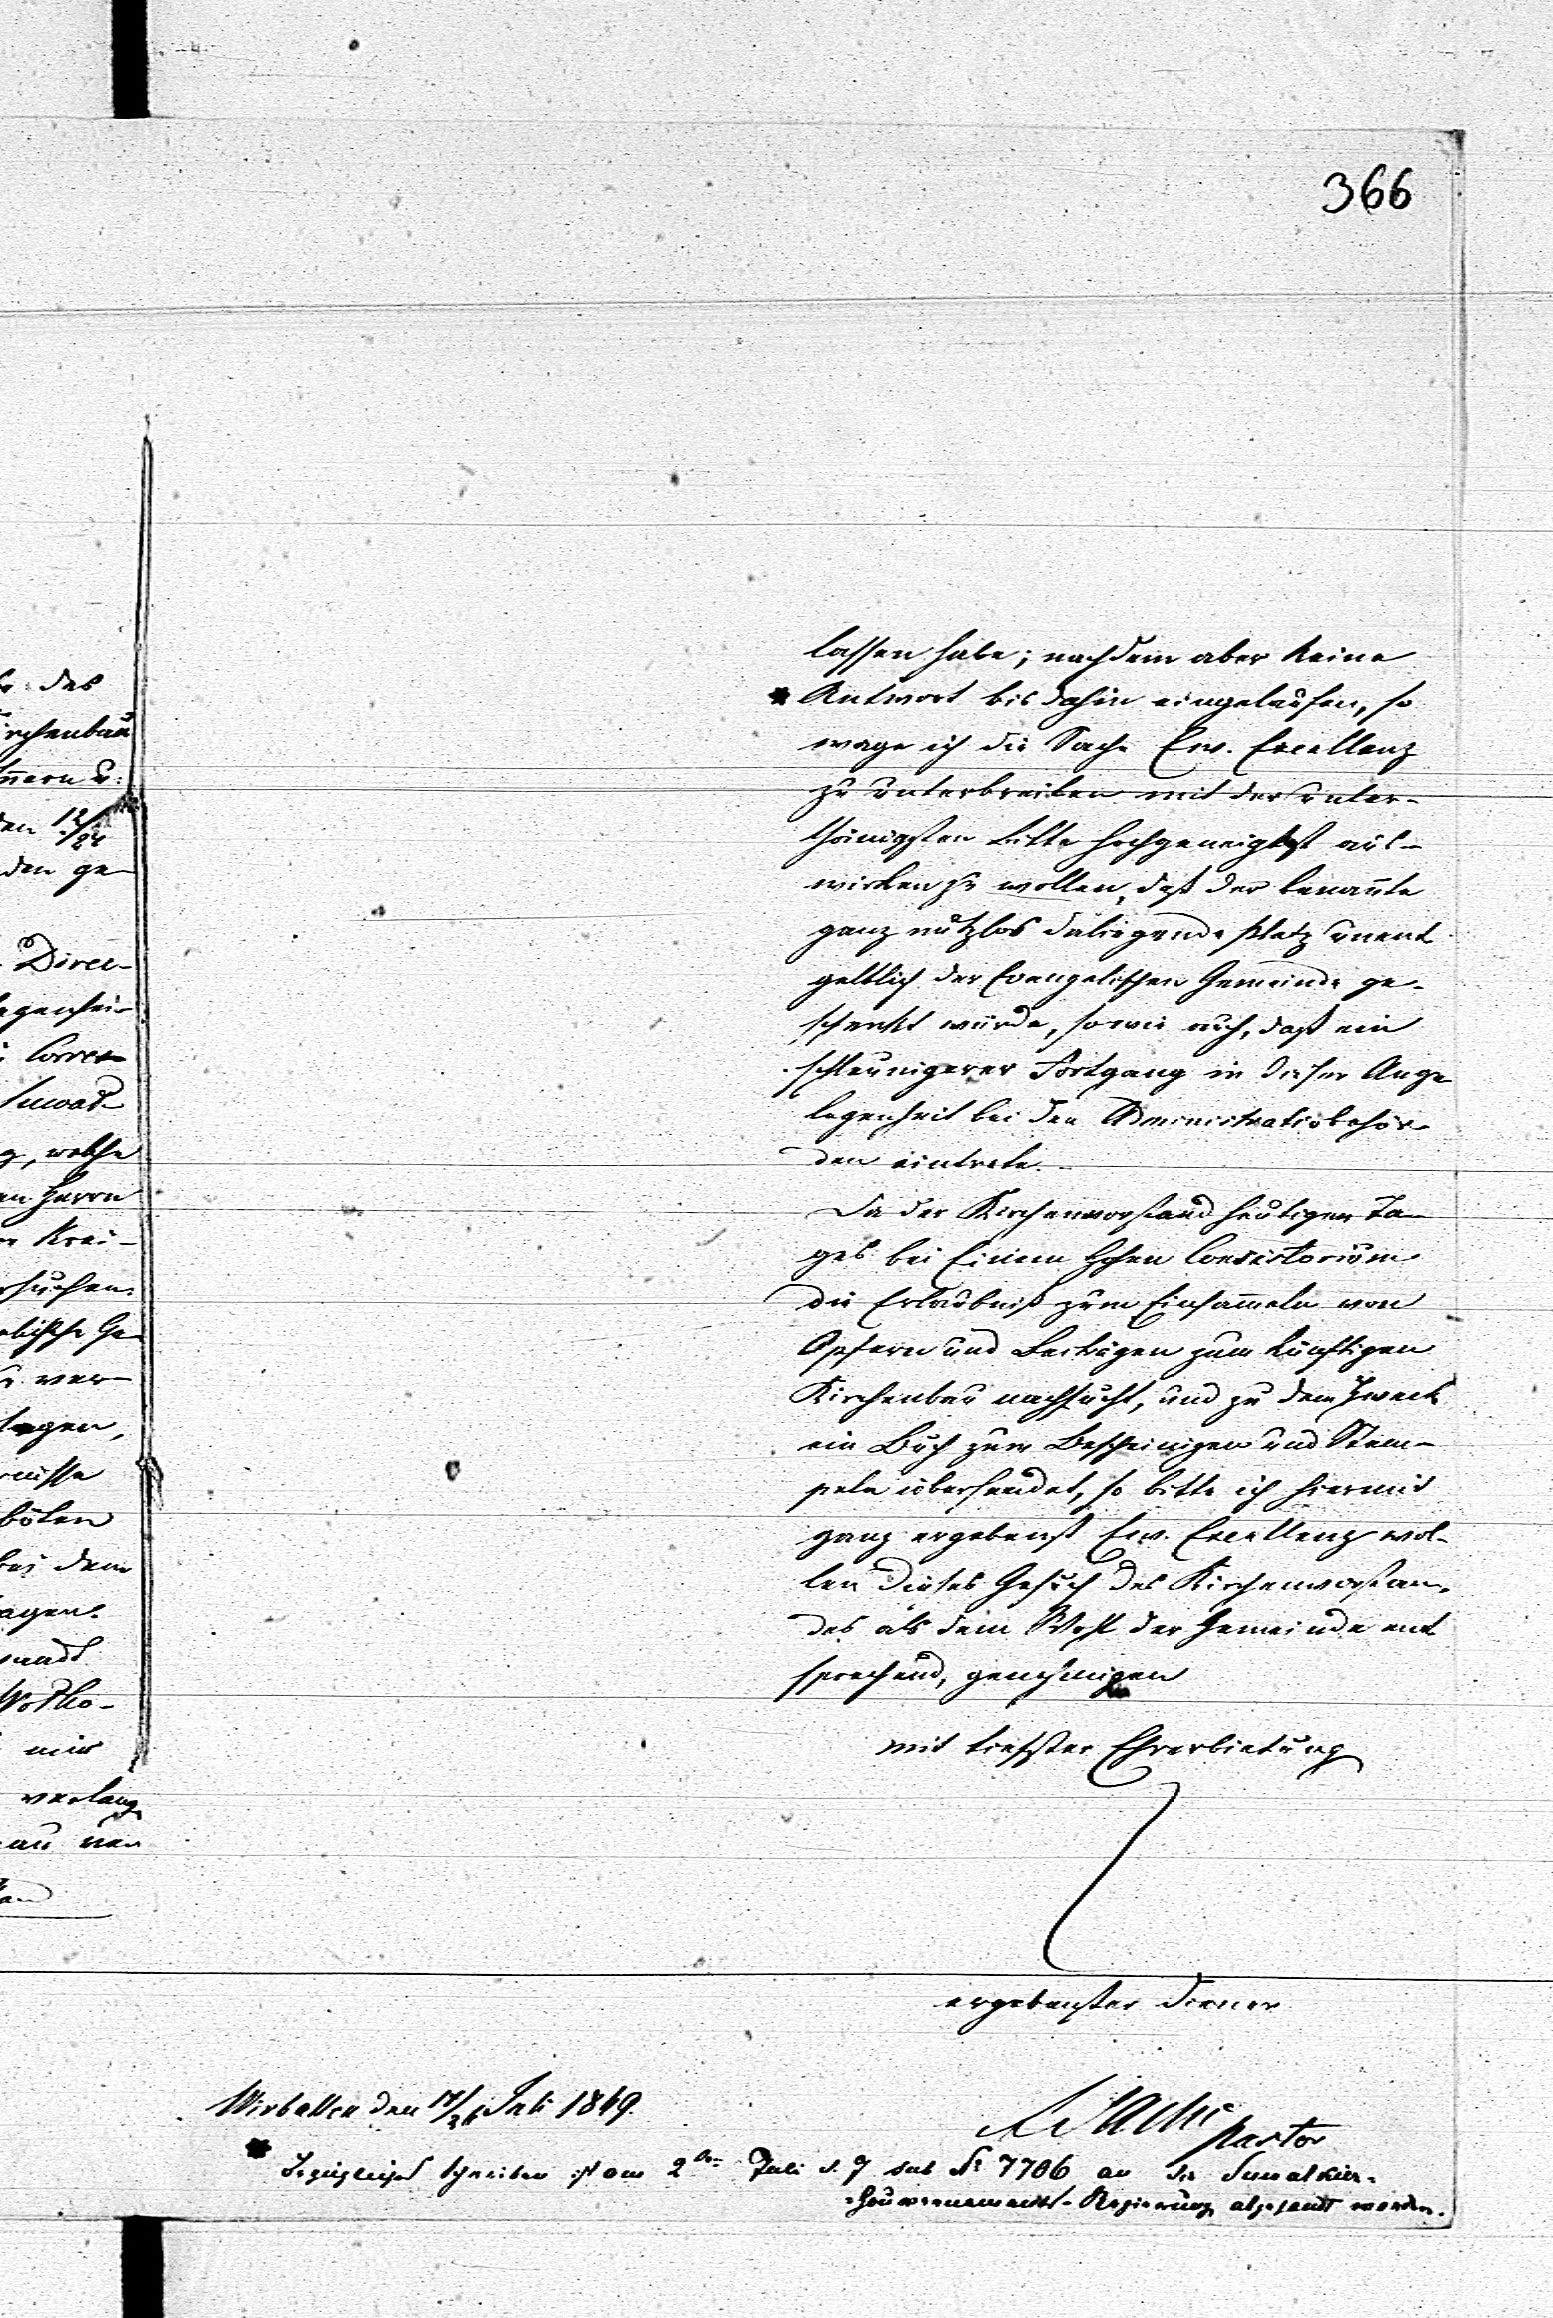 366
lassen habe; nachdem aber keine
* Antwort bis dahin eingelaufen, so
wage ich die Sache Ew. Excellenz
zu unterbreiten mit der unter-
thänigsten Bitte hochgeneigtest aus-
wirken zu wollen, daß der benañte
ganz nutzlos daliegende Platz unent
geltlich der Evangelischen Gemeinde ge-
schenkt würde, sowie auch, daß ein
schleunigerer Fortgang in dieser Ange
legenheit bei den Administratiobehör-
den eintrete.
Da der Kirchenvorstand heutigen Ta-
ges bei Einem Hohen Consistorium
die Erlaubniß zum Einsam̃eln von
Opfern und Beiträgen zum künftigen
Kirchenbau nachsucht, und zu dem Zweck
ein Buch zum Bescheinigen und Stem-
peln übersendet, so bitte ich hiermit
ganz ergebenst Ew. Excellenz wol-
len dieses Gesuch des Kirchenvorstan-
des als dem Wohl der Gemeinde ent
sprechend, genehmigen
mit tiefster Ehrerbietung
ergebenster Diener
Wirballen den 14/26 Juli 1849.
Pastor
* Bezügliches Schreiben ist am 2ten Juli d. J sub № 7706 an die Suwalkier-
-Gouvernements-Regierung abgesandt worden.
des
rchenbau
ñern u:
den 12/24
den ge-
Direc-
legenhei-
Corres
Suwal-
g, welche
en Herrn
Krei-
rsuchen
lische Ge-
ver-
lagen,
rnisse
böten
bei dem
agen.
sandt
mir
verlang